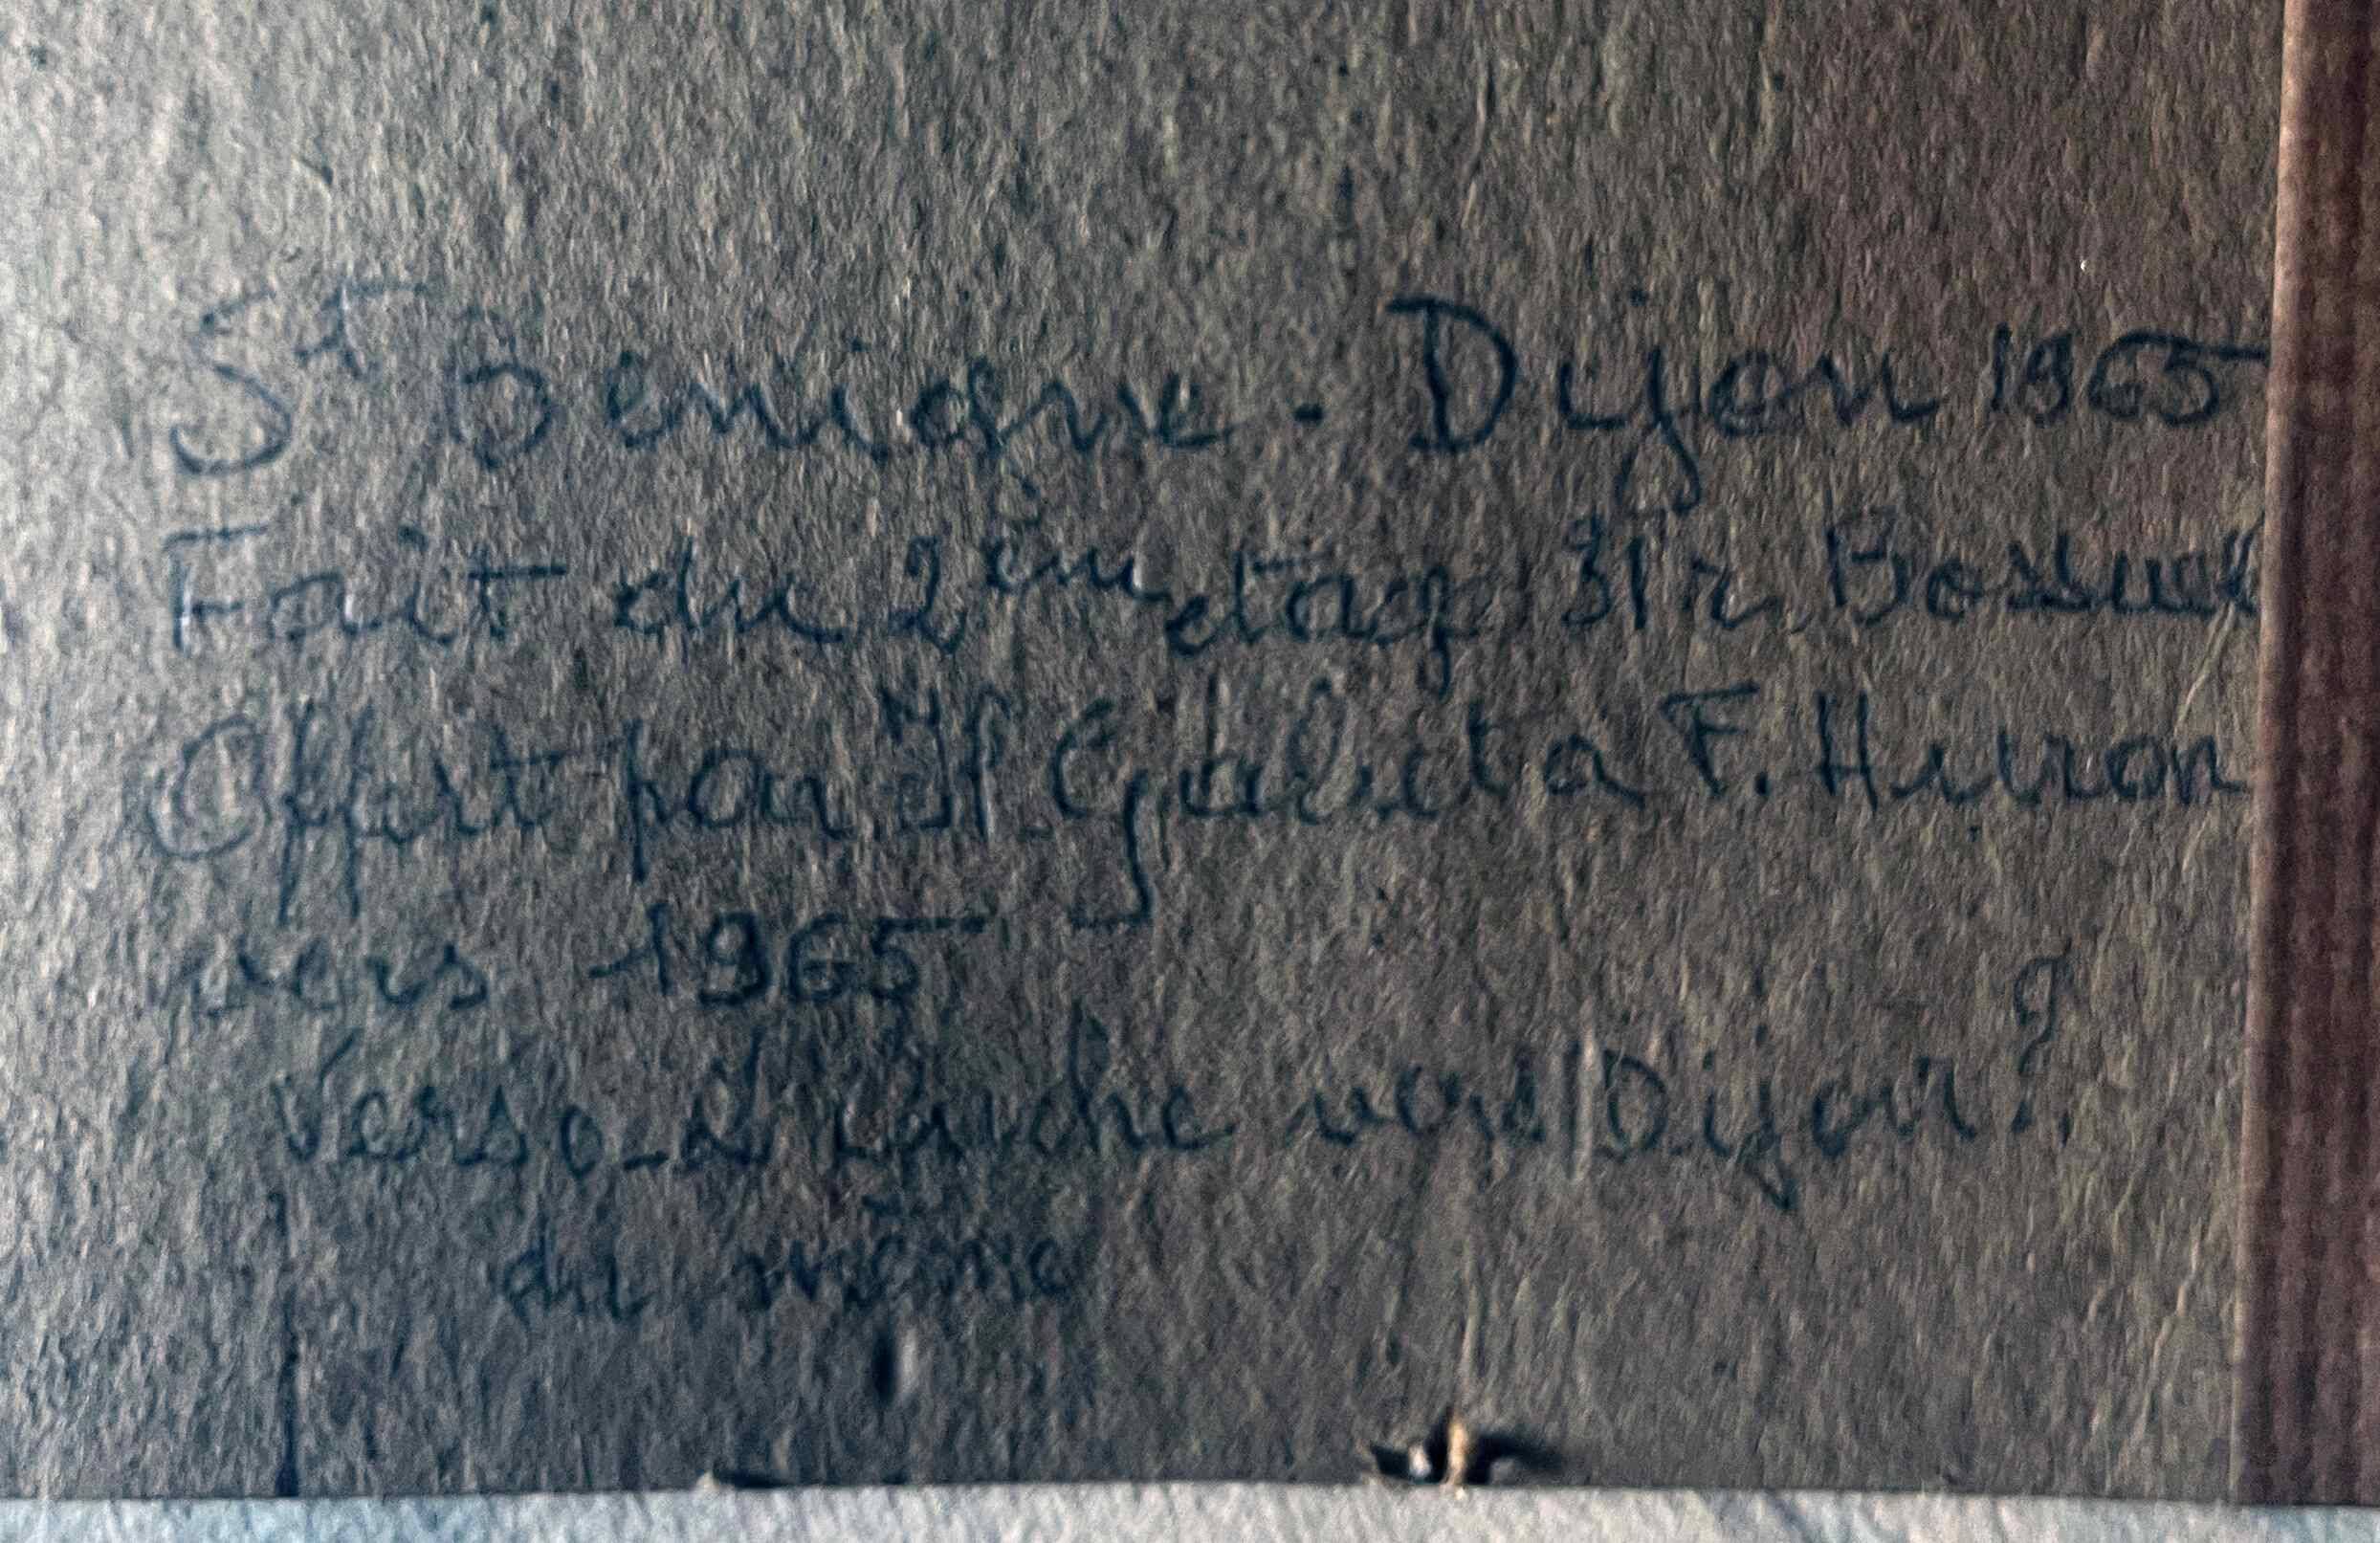 St Benigne - Dijon 1965
Fait du 2èm etage 31 r. Bossuet
Offert par F. Huron
vers 1965
Verso - vers Dijon ?
du même